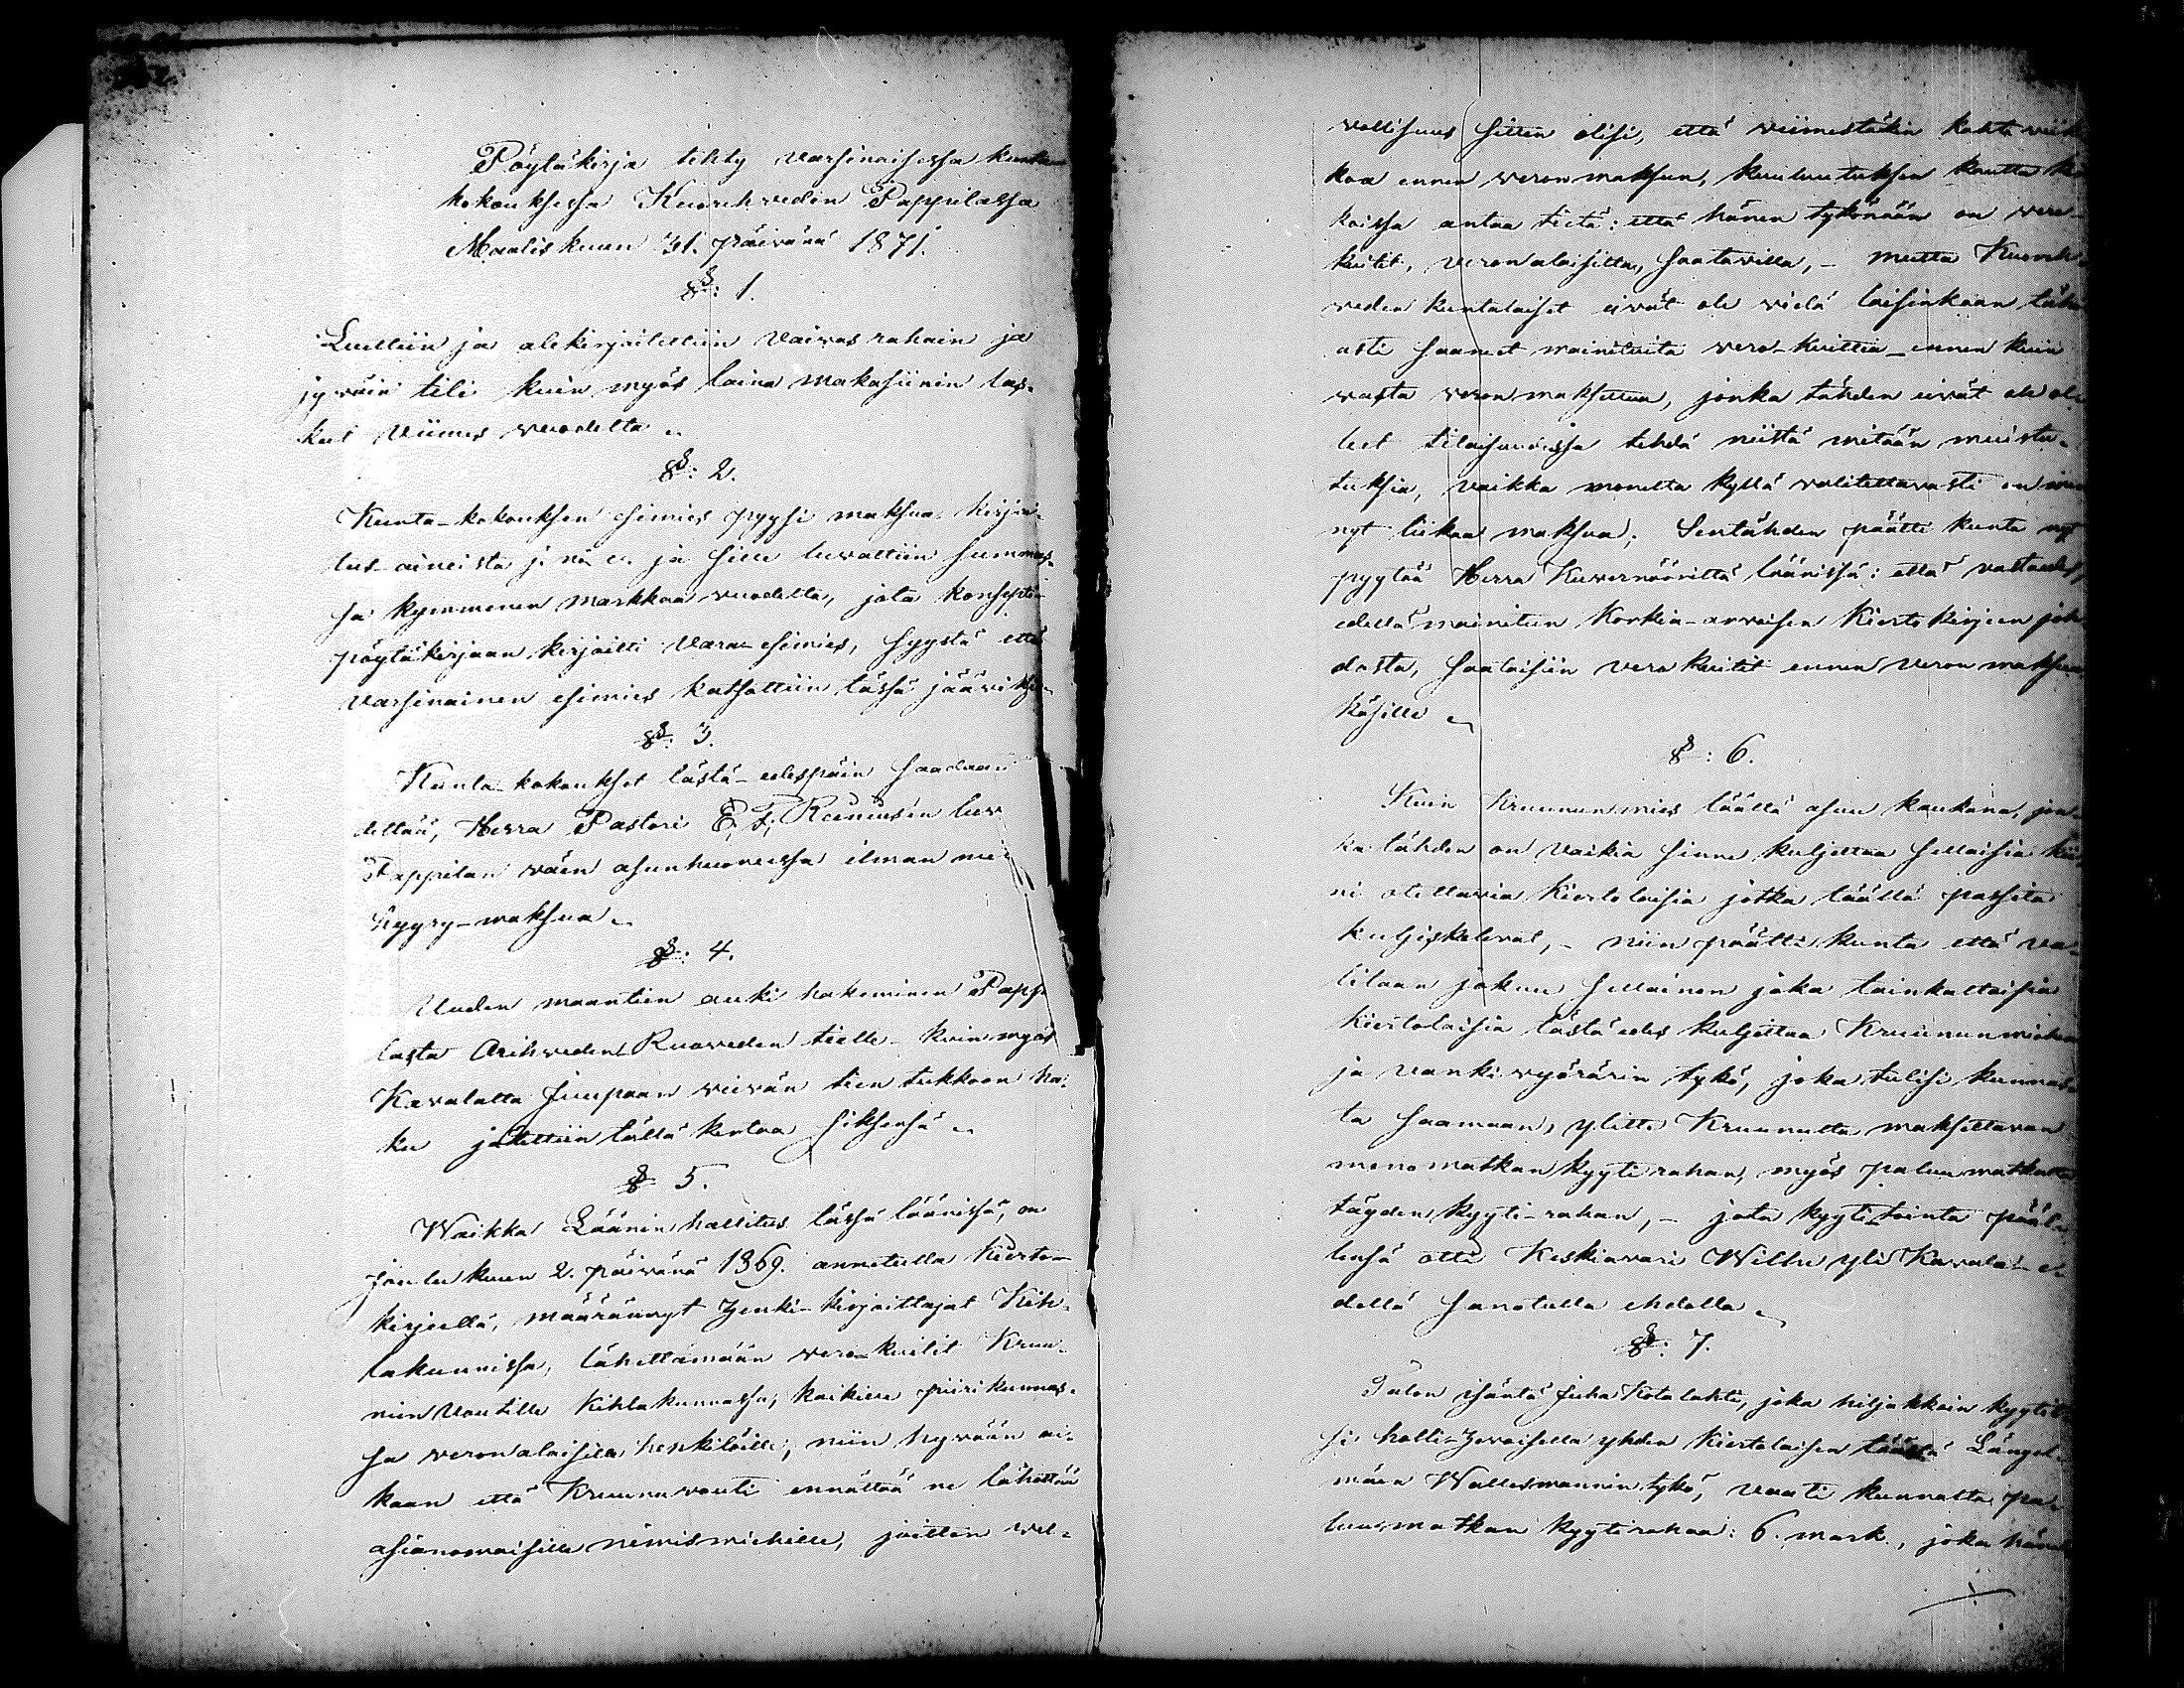 Pöytäkirja tehty varsinaisessa kunta
kokouksessa Kuorehveden Pappilassa
Maaliskuun 31. päivänä 1871.
§: 1.
Luettiin ja alekirjoitettiin Vaivas rahain ja
jywäin tili kuin myös laina makasiinin las-
kut viimes vuodelta
§: 2.
Kunta-kokouksen esimies pyysi maksua kirjoi-
tus-aineista j. n. e. ja sille luvattiin summas-
sa kymmenen markkaa vuodelta, jota konsepti-
pöytäkirjaan kirjoitti Vara-esimies, syystä että
varsinainen esimies katsottiin tässä jääviksi
§: 3.
Kunta-kokoukset tästä-edespäin saadaan
dettää, Herra Pastori E. F. luv
Pappilan wäen asunhuoneissa ilman
hyyry-maksua
§: 4.
Uuden maantien auki hakeminen Papp
lasta Arihveden Ruoveden tielle kuin myös
Kavalalta Simpaan vievän tien tukkoon ha-
ku jätettiin tällä kertaa siksensä
§ 5.
Waikka Läänin hallitus tässä läänissä, on
Joulukuun 2. päivänä 1869. annetulla kierto-
kirjeellä, määräännyt henki-kirjoittajat Kih-
lakunnissa, lähettämään vero-kuitit Kruu-
nun voutille Kihlakunnassa, kaikille piirikunnas-
sa veronalaisille henkilöille, niin hyvään ai-
kaan että Kruunuvouti ennättää ne lähettää
asianomaisille nimismiehille, joitten vel-
vollisuus sitten olisi, että viimestäkin kahta viik
koa ennen veron maksun, kuulutuksen kautta
koissa antaa tietä: että hänen tykönään on vero-
kuitit, veronalaisilla, saatavilla, - mutta Kuoreh-
veden kuntalaiset eivät ole vielä laisinkaan tähän
asti saaneet mainituita vero-kuittia ennen kuin
vasta veron maksettua, jonka tähden eivät ole ol-
leet tilaisuudessa tehdä niistä mitään muistu-
tuksia, vaikka monelta kyllä valitettavasti on
nyt liikaa maksua. Sentähden päätti kunta nyt
pyytää Herra Kuvernööriltä läänissä: että vastaudes
edellä mainitun Korkia-arvoisen Kiertokirjeen joh
dosta, saataisiin vero kuitit ennen veron maksua
käsille
§: 6.
Kuin Kruunun mies täällä asuu kaukana, jon-
ka tähden on vaikia sinne kuljettaa sellaisia kii
ni otettavia Kiertolaisia jotka täällä passita
kuljeskelevat, - niin päätti kunta että va-
litaan joku sellainen joka tainkaltaisia
Kiertolaisia tästä edes kuljettaa Kruunun miehen
ja vanki vyörärin tykö, joka tulisi kunnas-
ta saamaan, ylitte Kruunulta maksettavan
meno matkan kyyti rahan, myös paluu matkalta
täyden kyyti-rahan, - jota kyyti tointa pääl-
lensä otti Keskiavari Wilhu yli Kavala - e-
dellä sanotulla ehdolla
§: 7.
Talon isäntä Juha Kotalahti, joka hiljakkoin kyytit
si holli-hevoisella yhden Kiertolaisen täältä Längel-
mäen Wallesmannin tykö, vaati kunnalta pa-
luu matkan kyytirahaa: 6. mark., joka hänel